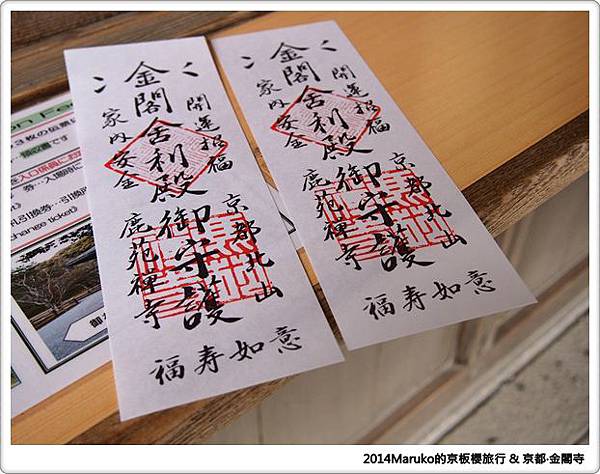 開運招福
金閣舎利殿御守護
家内安全
京都北山
鹿苑禅寺
福寿如意
開運招福
金閣舎利殿御守護
家内安全
京都北山
鹿苑禅寺
福寿如意
change ticket)
2014Maruko的京板櫻旅行 & 京都·金閣寺